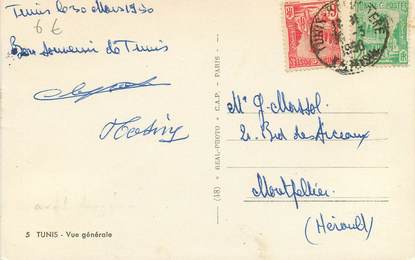 Tunis le 30 Mars 1950
6 €
Bon Souvenir de Tunis
5 TUNIS - Vue générale
(48) REAL-PHOTO C.A.P. - PARIS -
TUNIS
1950
POSTES
Mr G. Massol
2. Bd des Arceaux
Montpellier
(Hérault)